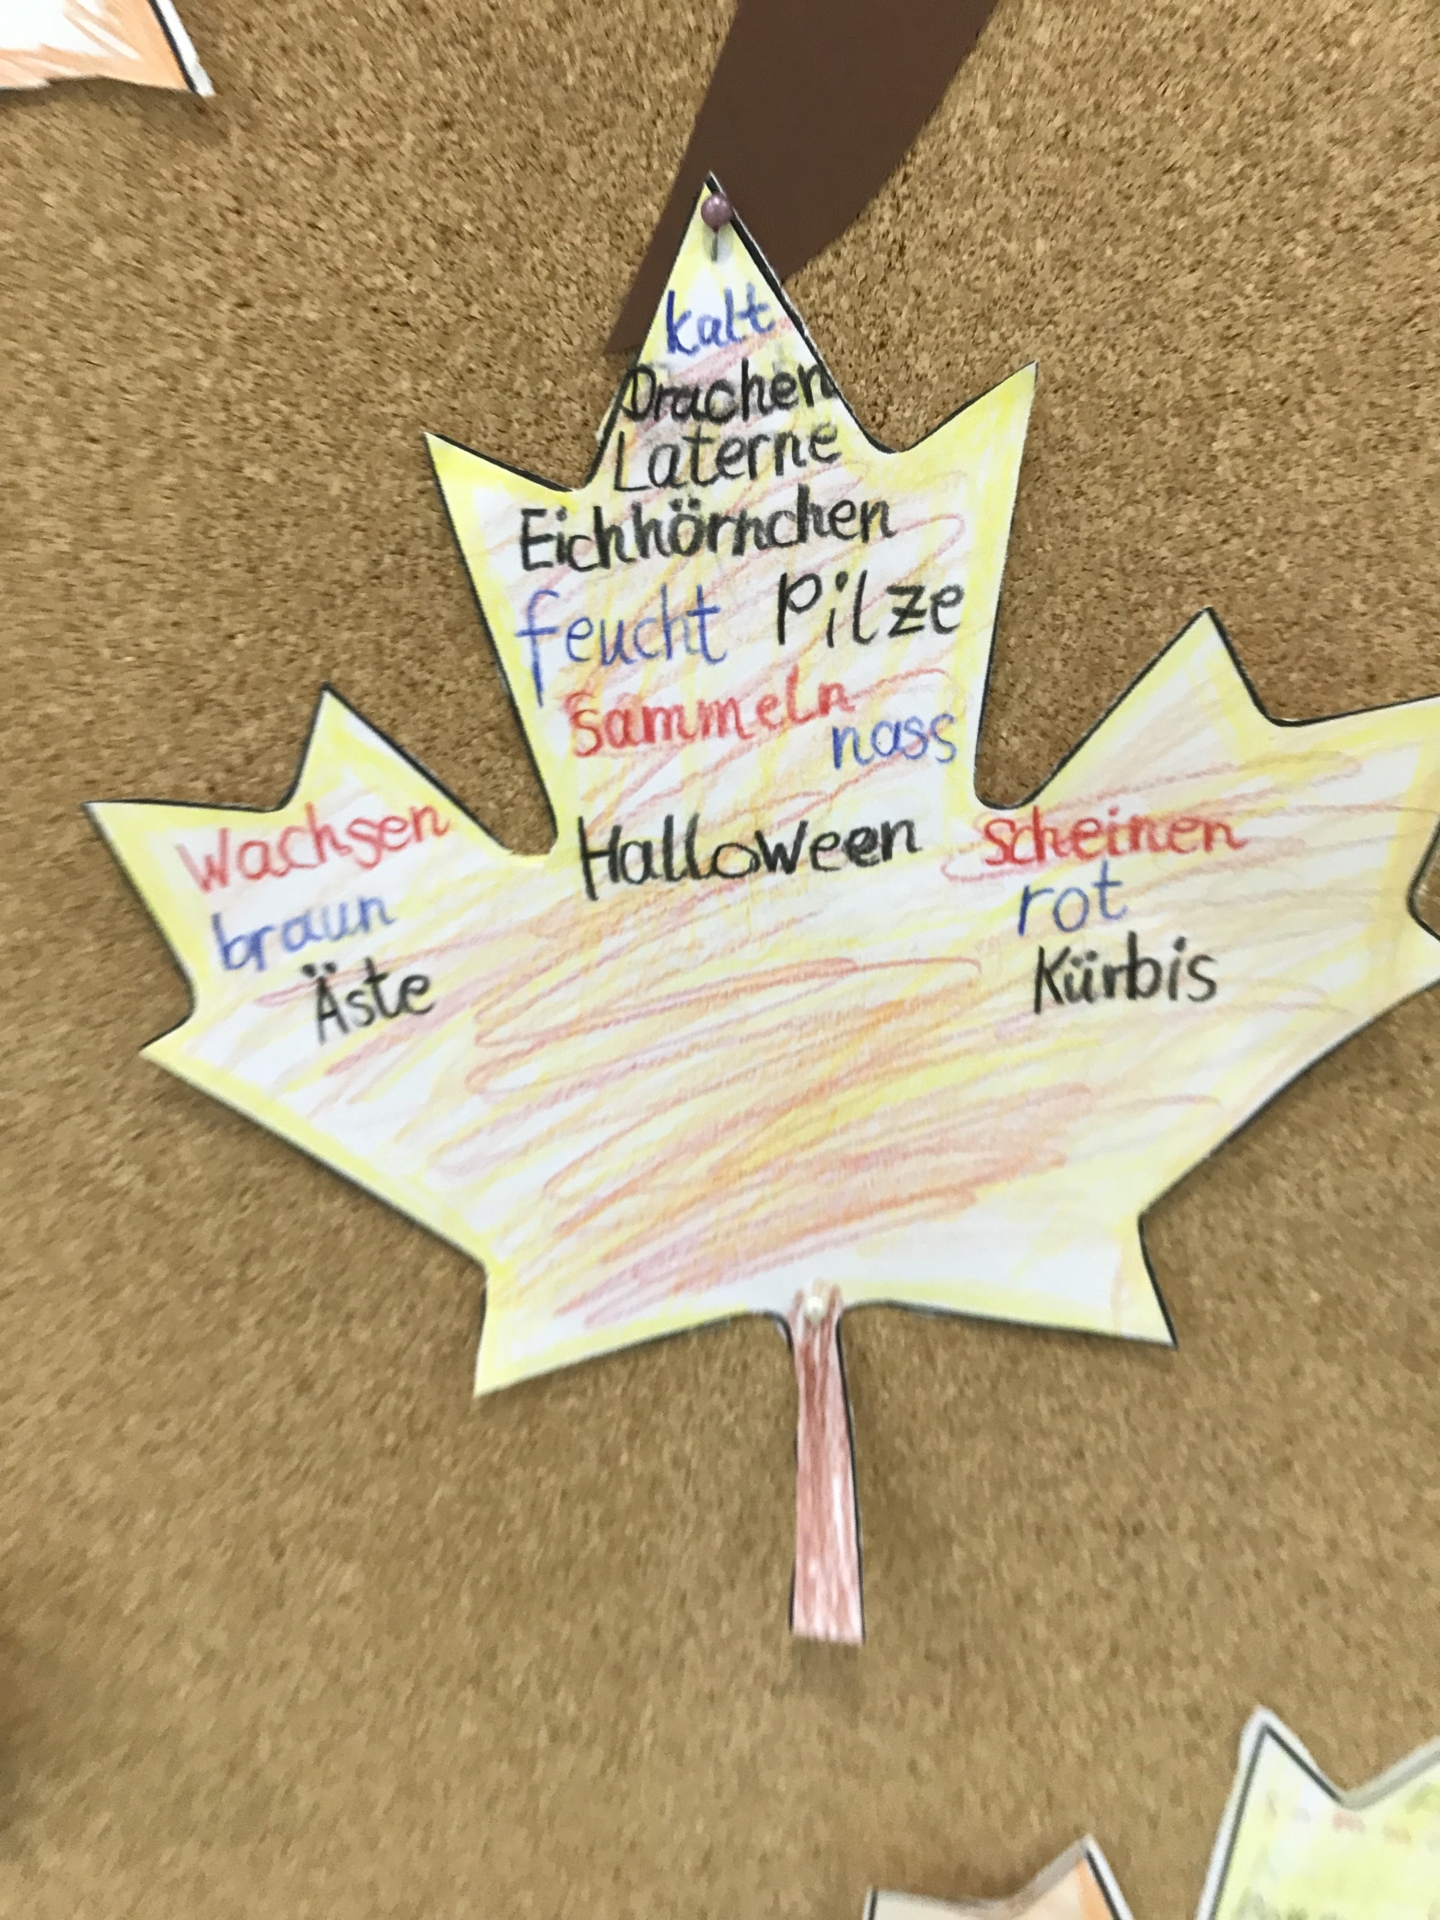 kalt
Drachen
Laterne
Eichhörnchen
feucht Pilze
sammeln
nass
Halloween
Wachsen
braun
Äste
Scheinen
rot
Kürbis